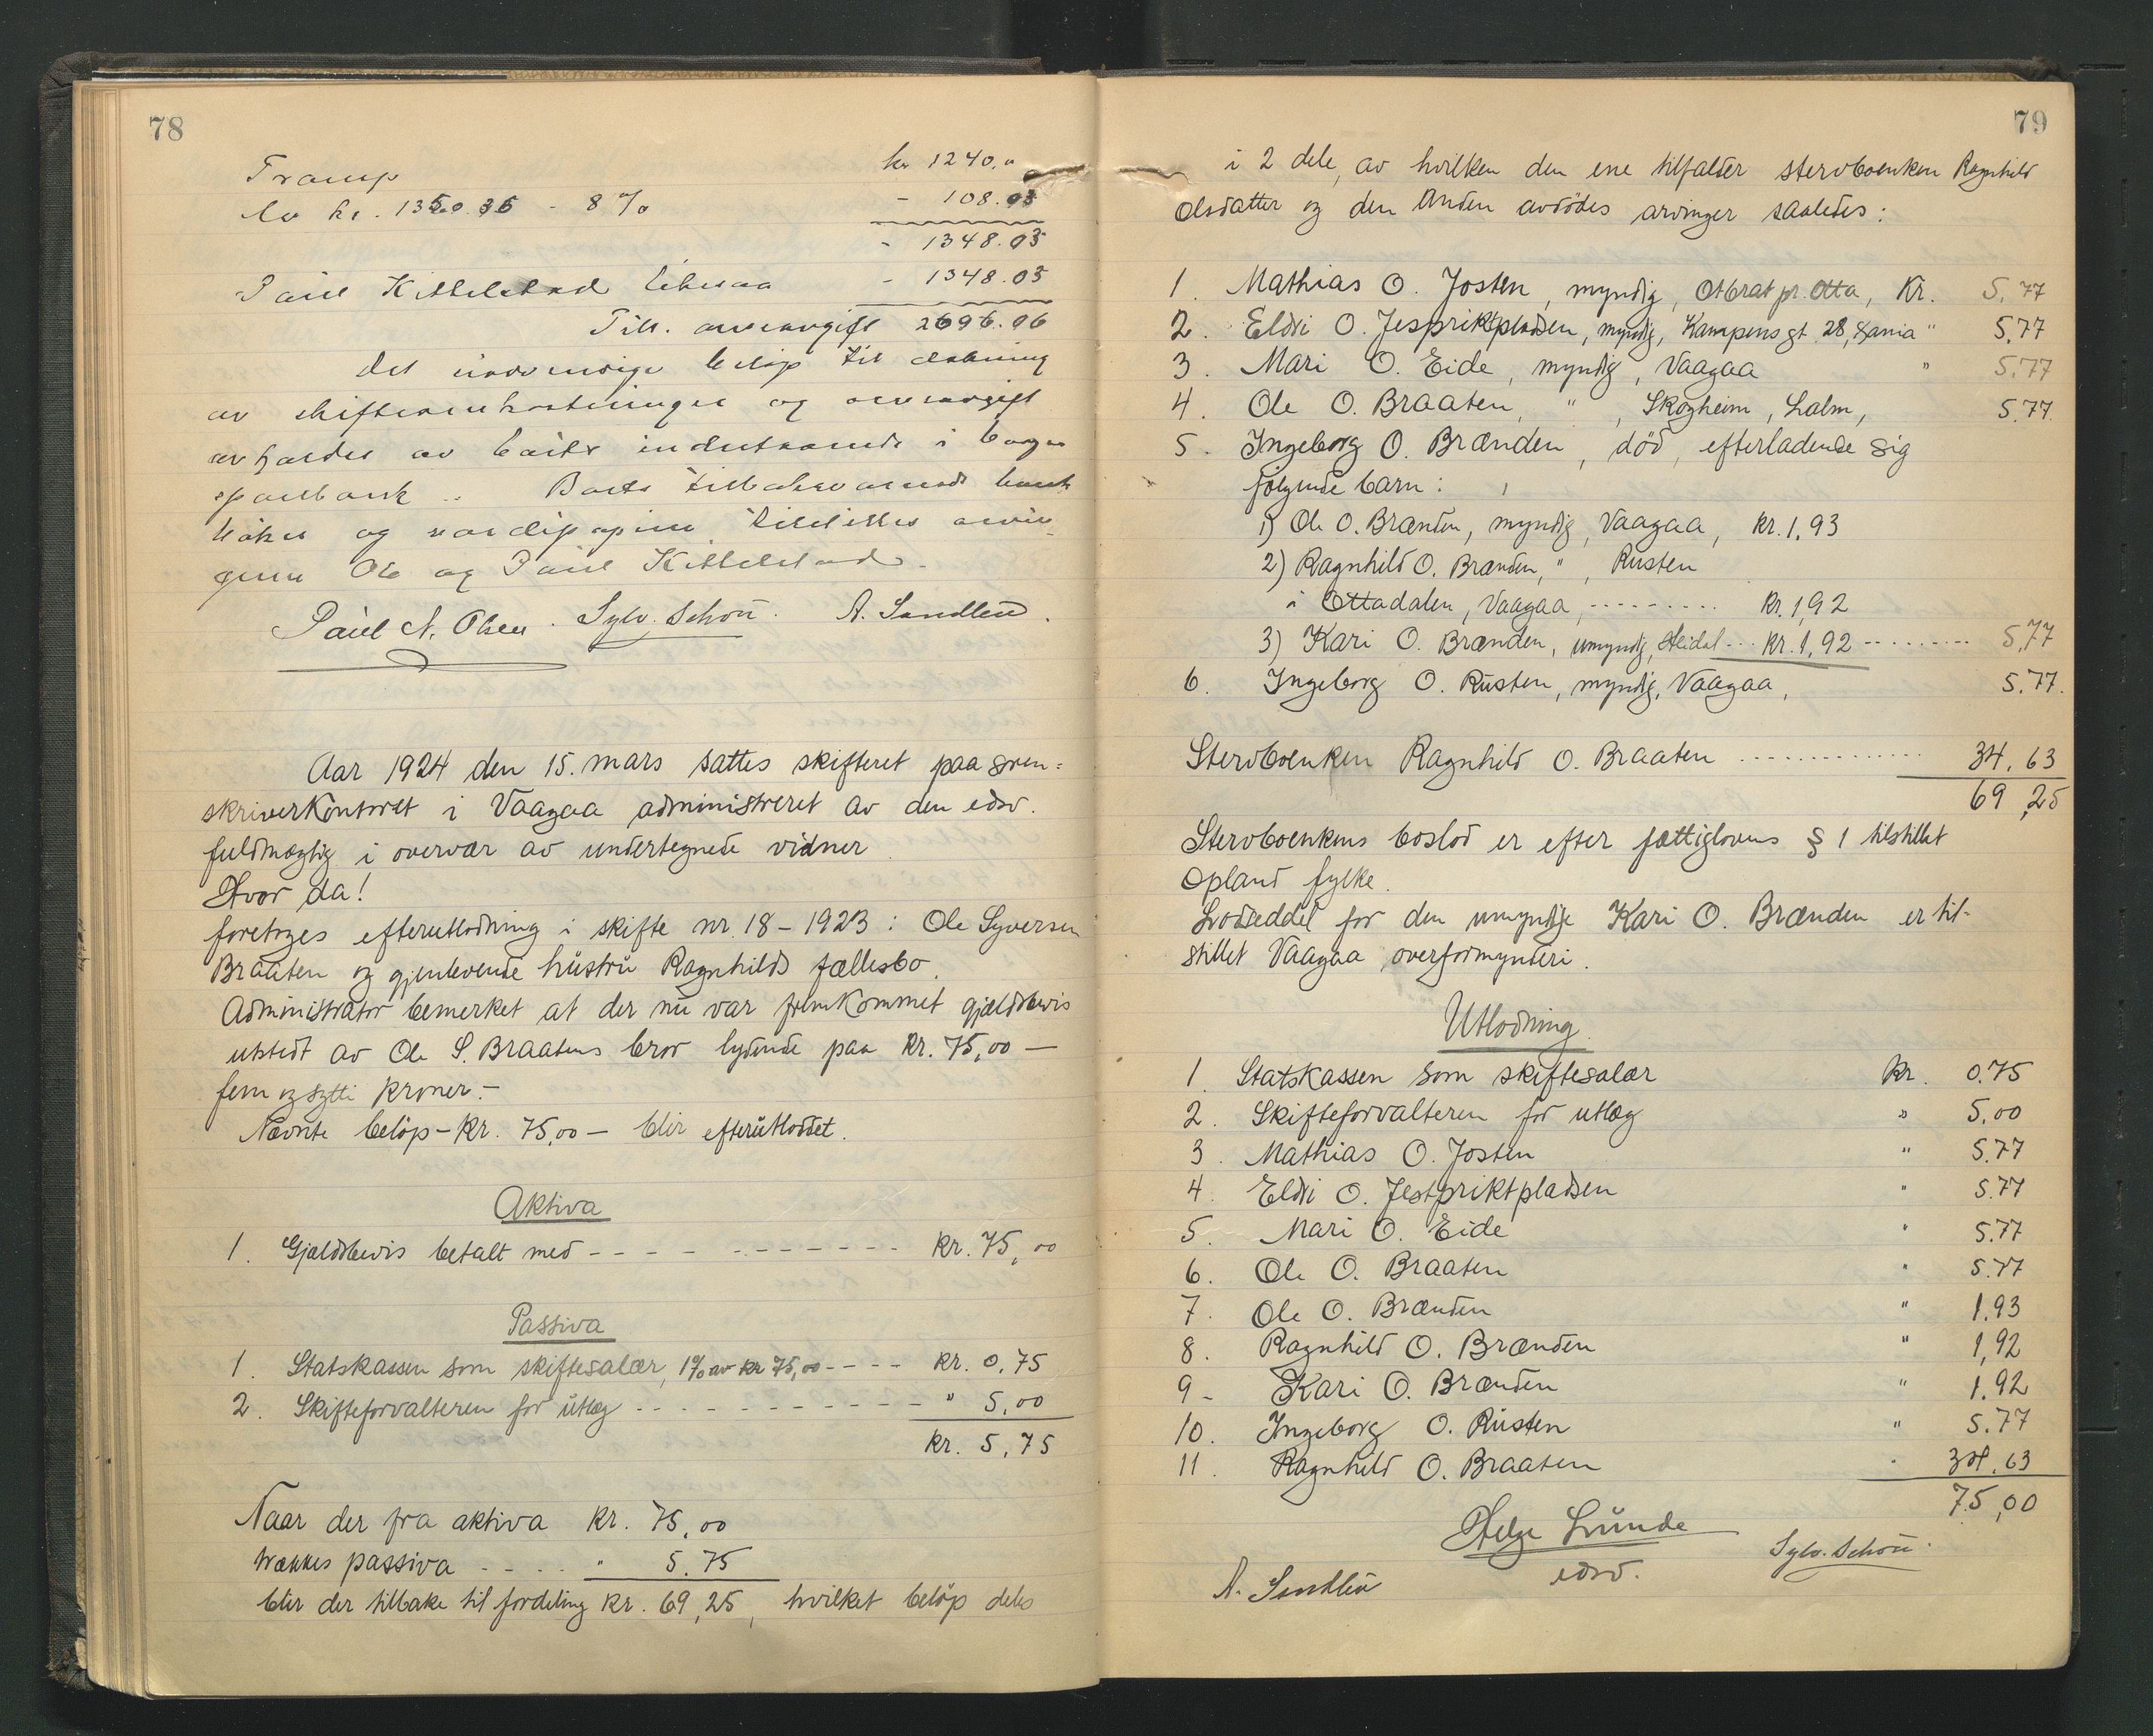 78
Transp kr 1240.
Av kr. 1350.35 - 8 % - 108.03
- 1348.03
Paul Kittelstad likesaa - 1348.03
Tils. arveavgift 2696.06
Det nødvendige beløp til dækning
av skifteomkostninger og arveavgift
av boets indestaaende i
sparebank .. Boets bank
bøker og værdipapirer tilstilles arvin-
gerne Ole og Paul Kittelstad.
Paul N. Olsen. Sylv. Schou. A. Sandlien.
Aar 1924 den 15. mars sattes skifteret paa soren-
skriverkontoret i Vaagaa administreret av den edsv.
fuldmægtig i overvær av undertegnede vidner.
Hvor da!
foretoges efterutlodning i skifte nr. 18 - 1923: Ole Syversen
Braaten og gjenlevende hustru Ragnhilds fællesbo.
Administrator bemerket at der nu var fremkommet gjældsbevis
utstedt av Ole S. Braatens bror lydende paa kr. 75,00 —
fem og sytti kroner.-
Nævnte beløp - kr. 75,00 - blir efterutloddet.
Aktiva
1. Gjældsbevis betalt med - - - - - - - - - - - kr. 75,00
Passiva
1. Statskassen som skiftesalær, 1% av kr 75,00 - - - - kr. 0,75
2. Skifteforvalteren for utlæg - - - - - - - - - - - " 5,00
kr. 5,75
Naar der fra aktiva kr. 75,00
trækkes passiva - - - - " 5.75
blir der tilbake til fordeling kr. 69,25, hvilket beløp deles
79
i 2 dele, av hvilken den ene tilfalder stervboenken Ragnhild
Olsdatter og den anden avdødes arvinger saaledes:
1. Mathias O. Josten, myndig, Otbrat pr. Otta, Kr. 5.77
2. Eldri O. Jespriktpladsen, myndig, Kampens gt. 28, Kania " 5,77
3. Mari O. Eide, myndig, Vaagaa " 5.77
4. Ole O. Braaten, " , Skogheim, Lalm, 5.77.
5. Ingeborg O. Brænden, død, efterladende sig
følgende barn:
1) Ole O. Brænden, myndig, Vaagaa, kr. 1,93
2) Ragnhild O. Brænden, " , Rusten
i Ottadalen, Vaagaa, - - - - - - - - - kr. 1,92
3) Kari O. Brænden, umyndig, Heidal - - - kr. 1,92 - - - - - - - - - 5,77
6. Ingeborg O. Rusten, myndig, Vaagaa, 5.77.
Stervboenken Ragnhild O. Braaten - - - - - - - - - - - - 34,63
69,25
Stervboenkens boslod er efter fattiglovens § 1 tilstillet
Opland fylke.
Lodseddel for den umyndige Kari O. Brænden er til-
stillet Vaagaa overformynderi.
Utlodning.
1. Statskassen som skiftesalær kr. 0.75
2. Skifteforvalteren for utlæg " 5,00
3. Mathias O. Josten " 5.77
4. Eldri O. Jestpriktpladsen " 5.77
5. Mari O. Eide " 5.77
6. Ole O. Braaten " 5.77
7. Ole O. Brænden " 1.93
8. Ragnhild O. Brænden " 1,92
9 - Kari O. Brænden " 1.92
10. Ingeborg O. Rusten " 5.77
11. Ragnhild O. Braaten " 34.63
75,00
Helge Lunde
edsv.
Sylv. Schou.
A. Sandlien